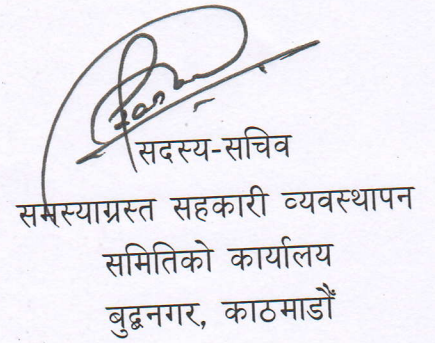 सदस्य-सचिव
समस्याग्रस्त सहकारी व्यवस्थापन
समितिको कार्यालय
बुद्धनगर, काठमाडौँ